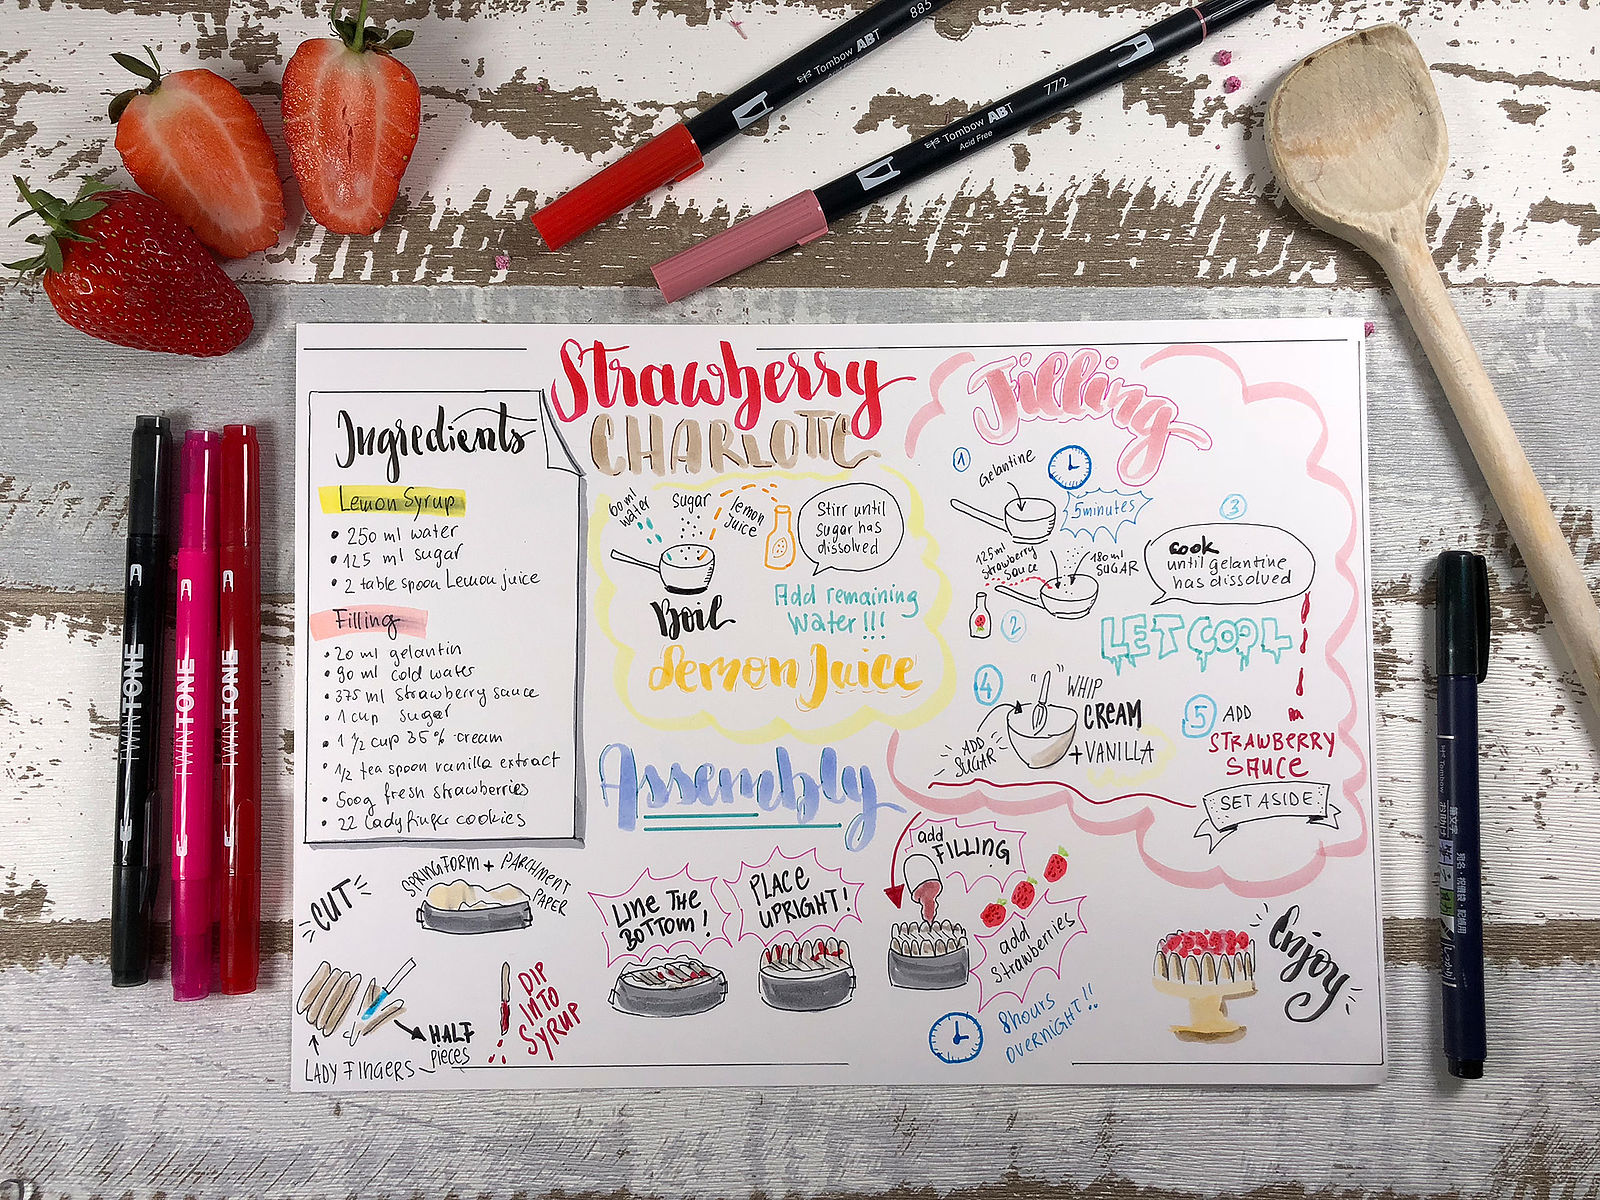 885
Tombow ABT
772
Tombow ABT
Acid Free
TWINTONE
TWINTONE
TWINTONE
Strawberry
CHARLOTTE
Ingredients
Lemon Syrup
• 250 ml water
• 125 ml sugar
• 2 table spoon Lemon juice
Filling
• 20 ml gelantin
• 90 ml cold water
• 375 ml strawberry sauce
• 1 cup sugar
• 1 1/2 cup 35% cream
• 1/2 tea spoon vanilla extract
• 500g fresh strawberries
• 22 Ladyfinger cookies
60 ml
water
sugar
lemon
juice
Stirr until
sugar has
dissolved
Boil
Add remaining
water!!!
Lemon Juice
Filling
1
Gelantine
5 minutes
125 ml
strawberry
sauce
180 ml
SUGAR
2
3
cook
until gelantine
has dissolved
LET COOL
4
"WHIP
CREAM
+ VANILLA
ADD
SUGAR
5 ADD
STRAWBERRY
SAUCE
SET ASIDE
Assembly
CUT
SPRINGFORM + PARCHMENT
PAPER
LADY FINGERS
HALF
pieces
DIP
INTO
SYRUP
LINE THE
BOTTOM!
PLACE
UPRIGHT!
add
FILLING
add
strawberries
8hours
OVERNIGHT!!
Enjoy
Tombow